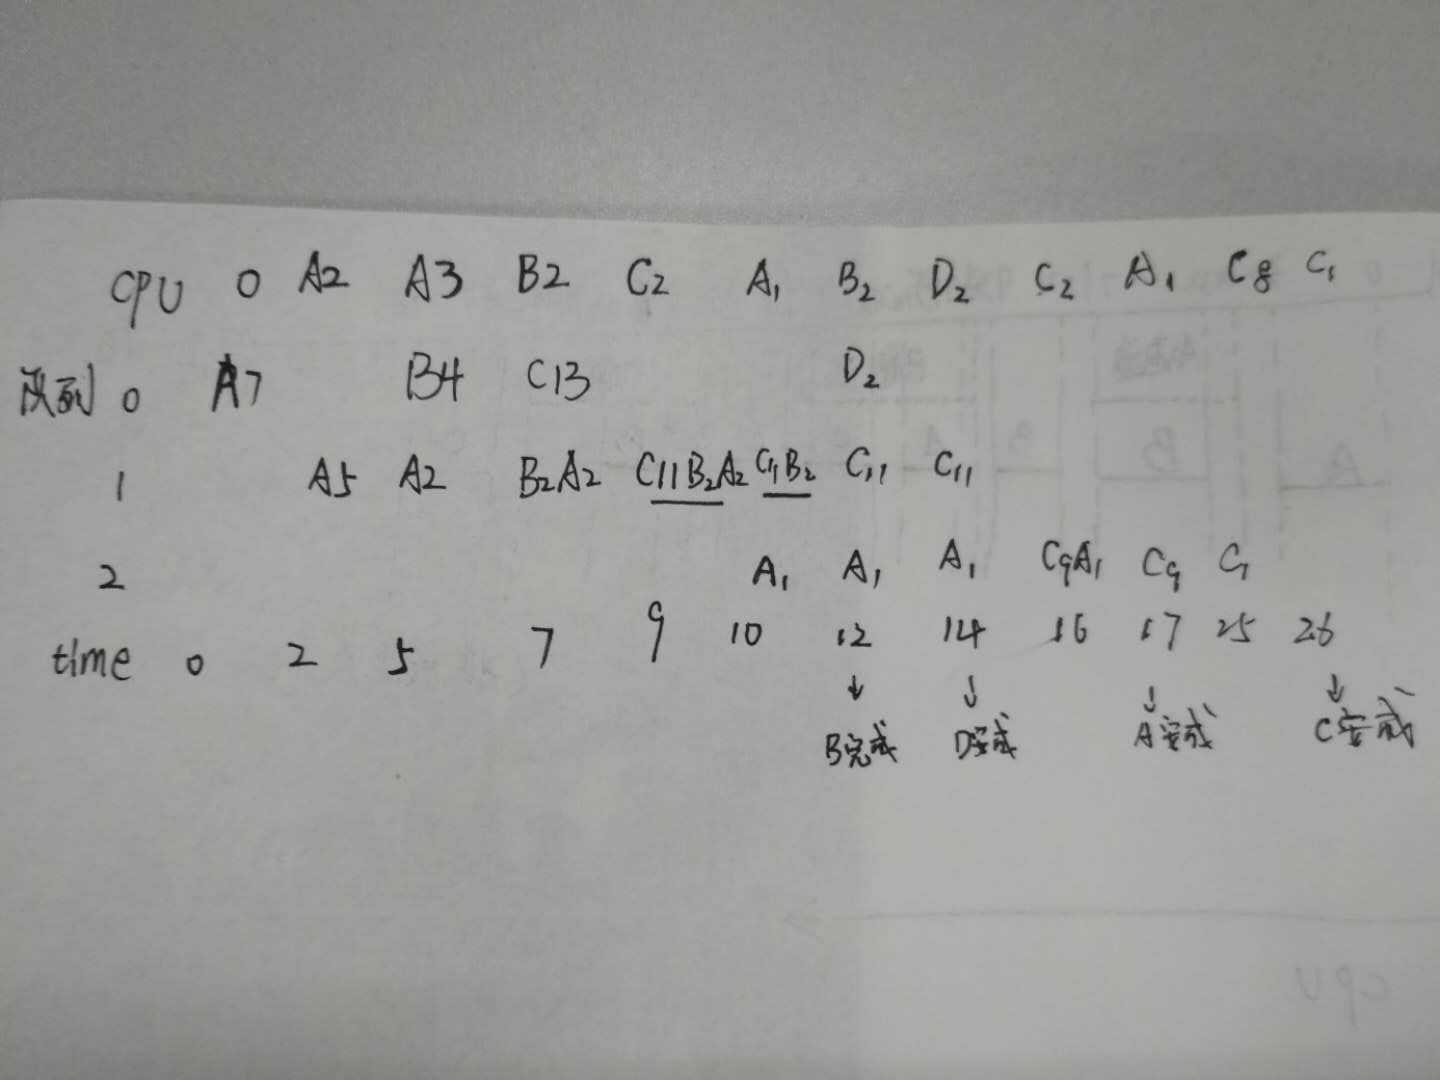 CPU 0 A2 A3 B2 C2 A1 B2 D2 C2 A1 C8 C1
队列 0 A7 B4 C13 D2
1 A5 A2 B2A2 C11B2A2 C11B2 C11 C11
2 A1 A1 A1 C9A1 C9 C1
time 0 2 5 7 9 10 12 14 16 17 25 26
↓ ↓ ↓ ↓
B完成 D完成 A完成 C完成
CPU